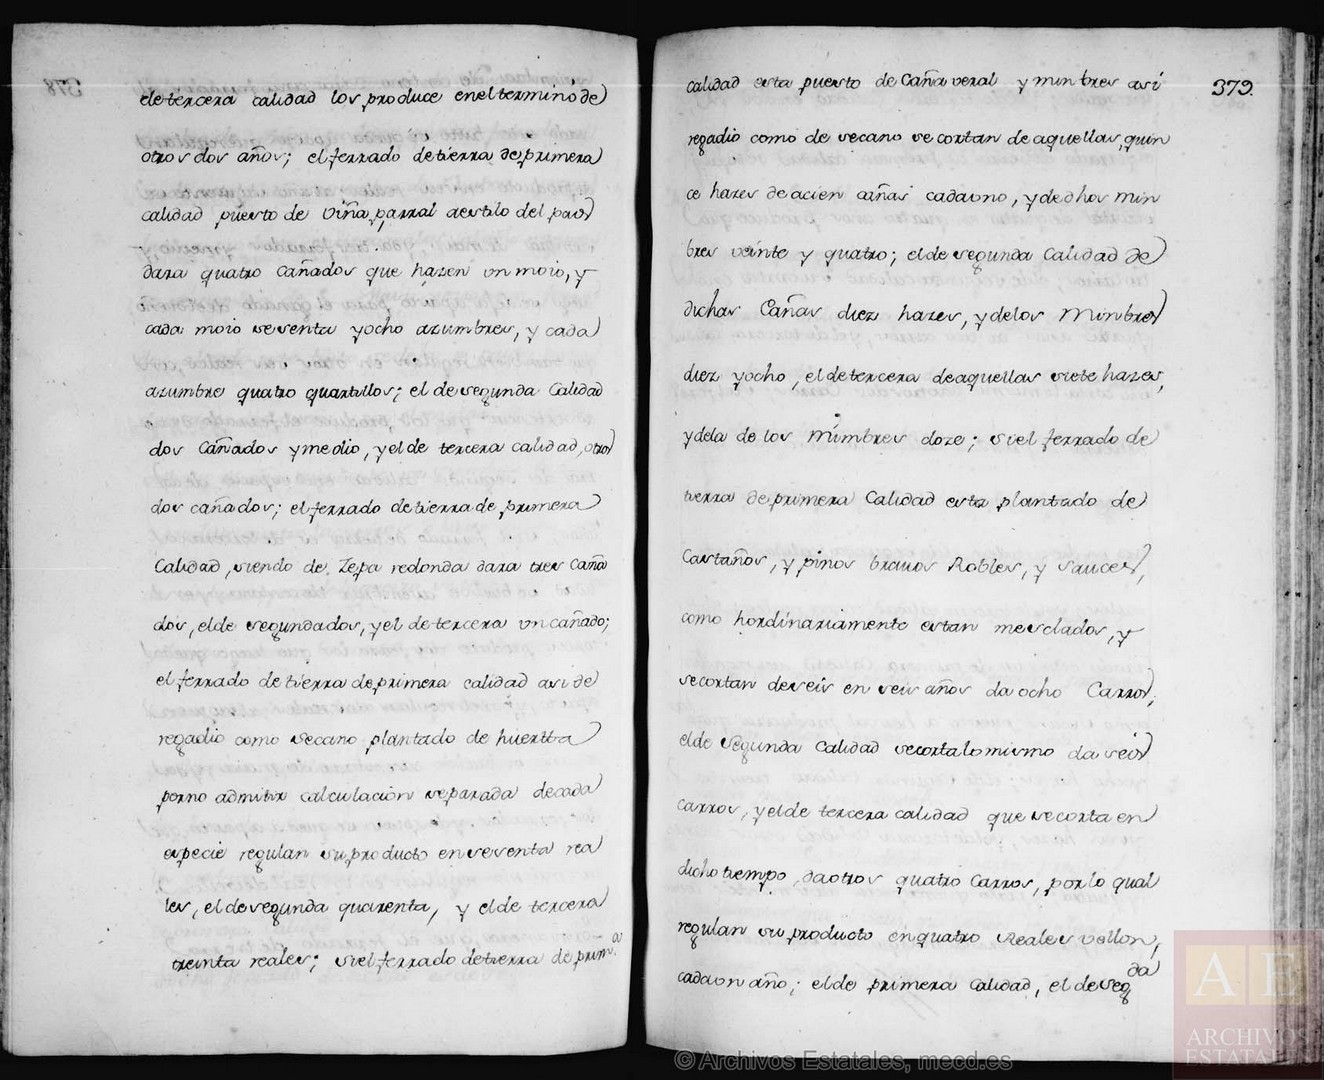 de tercera calidad los produce enel termino de
otros dos años; el ferrado de tierra de primera
calidad puesto de viña parral aestilo del pais
dara quatro cañados que hazen un moio, y
cada moio sesenta yocho azumbres, y cada
azumbre quatro quartillos; el de segunda Calidad
dos Cañados ymedio, yel de tercera calidad, otros
dos cañados; el ferrado detierra de primera
Calidad, siendo de Zepa redonda dara tres Caña
dos, elde segundados, yel de tercera un cañado;
el ferrado de tierra de primera calidad asi de
regadio como secano plantado de huertta
porno admitir calculacion separada decada
especie regulan su producto en sesenta rea
les, el desegunda quarenta, y elde tercera
treinta reales; siel ferrado detierra de prim.ª
379.
calidad esta puesto de Caña veral y mimbres asi
regadio como de secano se cortan de aquellas, quin
ce hazes de acien cañas cadauno, y dedhos mim
bres veinte y quatro; elde segunda Calidad de
dichas Cañas diez hazes, ydelos Mimbres
diez yocho, el detercera deaquellas siete hazes,
ydela de los mimbres doze; siel ferrado de
tierra de primera Calidad esta plantado de
Castaños, y pinos bravos Robles, y sauces,
como hordinariamente estan mesclados, y
secortan deseis en seis años da ocho Carros;
elde segunda Calidad secortalo mismo da seis
carros, yelde tercera calidad que secorta en
dicho tiempo, daotros quatro Carros, porlo qual
regulan su producto enquatro Reales vellon,
cadaun año; elde primera Calidad, el de seg.da
© Archivos Estatales, mecd.es
AE
ARCHIVOS
ESTATALES